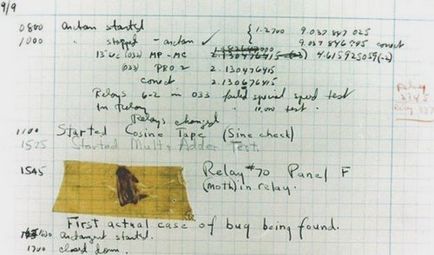 9/9
0800 Antan started { 1.2700 9.037 847 025
1000 " stopped - antan ✓ 9.037 846 995 conect
13"uc (032) MP-MC 2.130476415 4.615925059(-2)
(033) PRO 2 2.130476415
conect 2.130676415
Relays 6-2 in 033 failed special speed test
In Relay " 10,000 test.
Relays changed
1100 Started Cosine Tape (Sine check)
1525 Started Mult+Adder Test.
1545 Relay #70 Panel F
(moth) in relay.
First actual case of bug being found.
1630 antangent started.
1700 closed down.